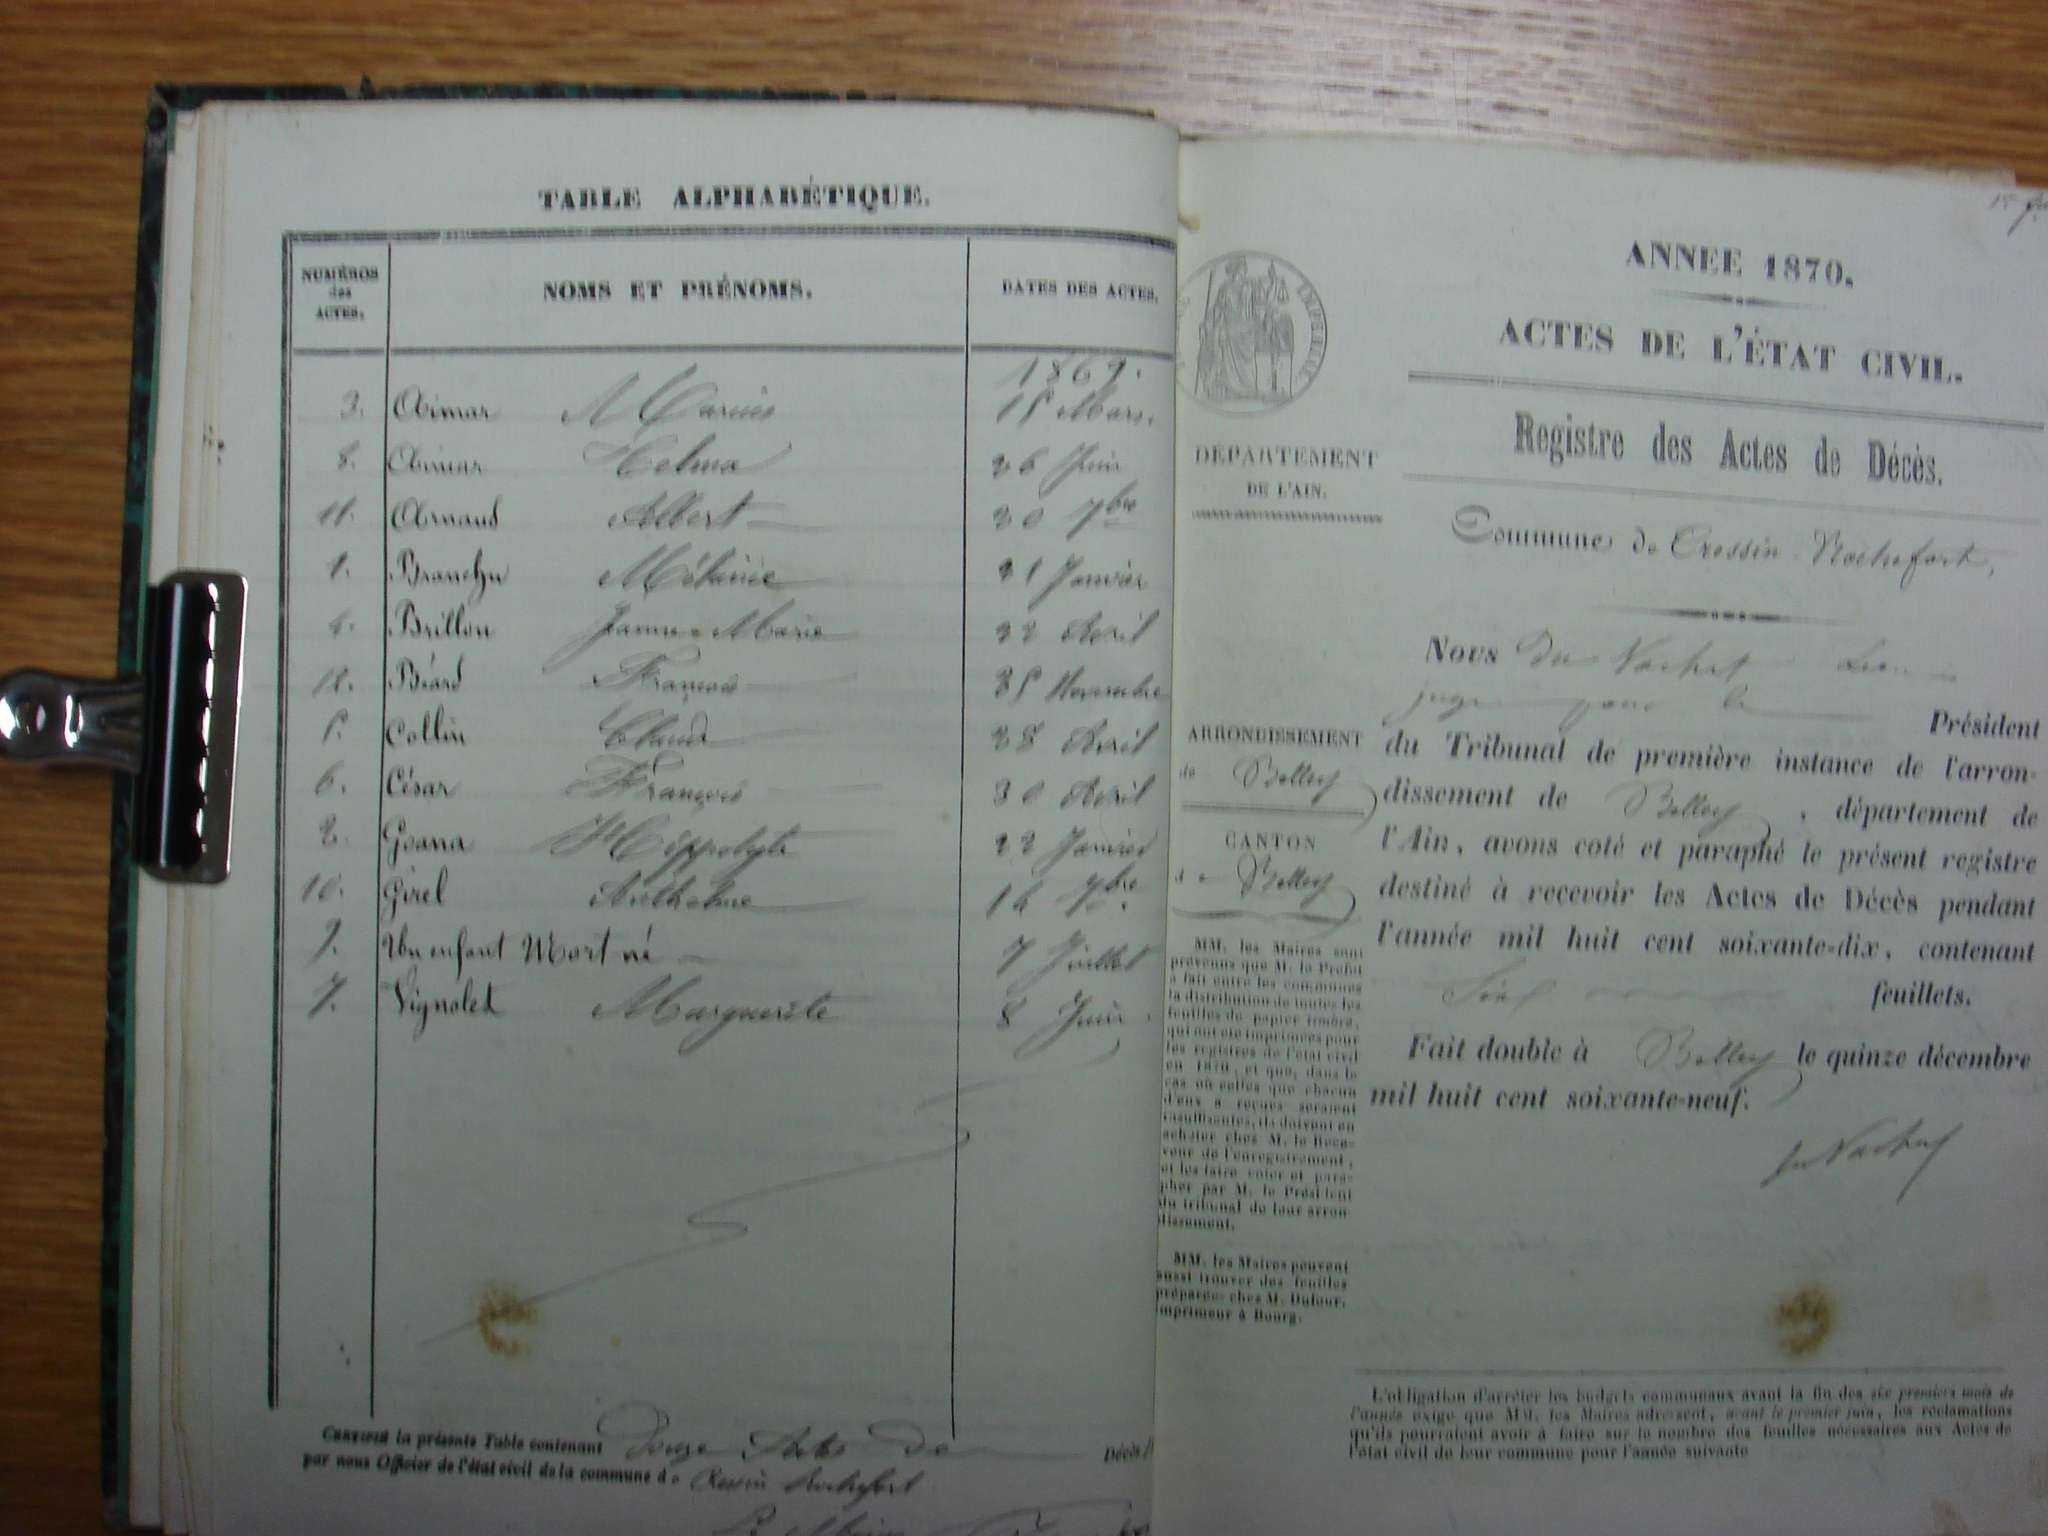 TABLE ALPHABÉTIQUE.
NUMÉROS des ACTES. NOMS ET PRÉNOMS. DATES DES ACTES.
1869.
3. Aimar Marius 15 Mars.
8. Aimar 26 Juin
11. Arnaud Albert 20 7bre
1. Branchu Mélanie 21 Janvier
4. Brillon Jeanne-Marie 22 Avril
12. Béard François 25 Novembre
5. Collin Claude 28 Avril
6. César François 30 Avril
2. Goana Hippolyte 22 Janvier
10. Girel Anthelme 14 7bre.
9. Un enfant Mort né 7 Juillet
7. Vignolet Marguerite 8 Juin
CERTIFIÉE la présente Table contenant Douze Actes de Décès
par nous Officier de l'état civil de la commune de Cressin Rochefort
Le Maire
ANNEE 1870.
ACTES DE L'ÉTAT CIVIL.
Registre des Actes de Décès.
Commune de Cressin-Rochefort,
IMPERIAL
DÉPARTEMENT
DE L'AIN.
ARRONDISSEMENT
de Belley
CANTON
de Belley
MM. les Maires sont
prévenus que M. le Préfet
a fait entre les communes
la distribution de toutes les
feuilles de papier timbré,
qui ont été imprimées pour
les registres de l'état civil
en 1870, et que, dans le
cas où celles que chacun
d'eux a reçues seraient
insuffisantes, ils doivent en
acheter chez M. le Rece-
veur de l'enregistrement,
et les faire coter et para-
pher par M. le Président
du tribunal de leur arron-
dissement.
MM. les Maires peuvent
aussi trouver des feuilles
préparées chez M. Dufour,
imprimeur à Bourg.
NOUS du Vachat Léon
juge pour le Président
du Tribunal de première instance de l'arron-
dissement de Belley, département de
l'Ain, avons coté et paraphé le présent registre
destiné à recevoir les Actes de Décès pendant
l'année mil huit cent soixante-dix, contenant
feuillets.
Fait double à Belley le quinze décembre
mil huit cent soixante-neuf.
du Vachat
L'obligation d'arrêter les budgets communaux avant la fin des six premiers mois de
l'année exige que MM. les Maires adressent, avant le premier juin, les réclamations
qu'ils pourraient avoir à faire sur le nombre des feuilles nécessaires aux Actes de
l'état civil de leur commune pour l'année suivante